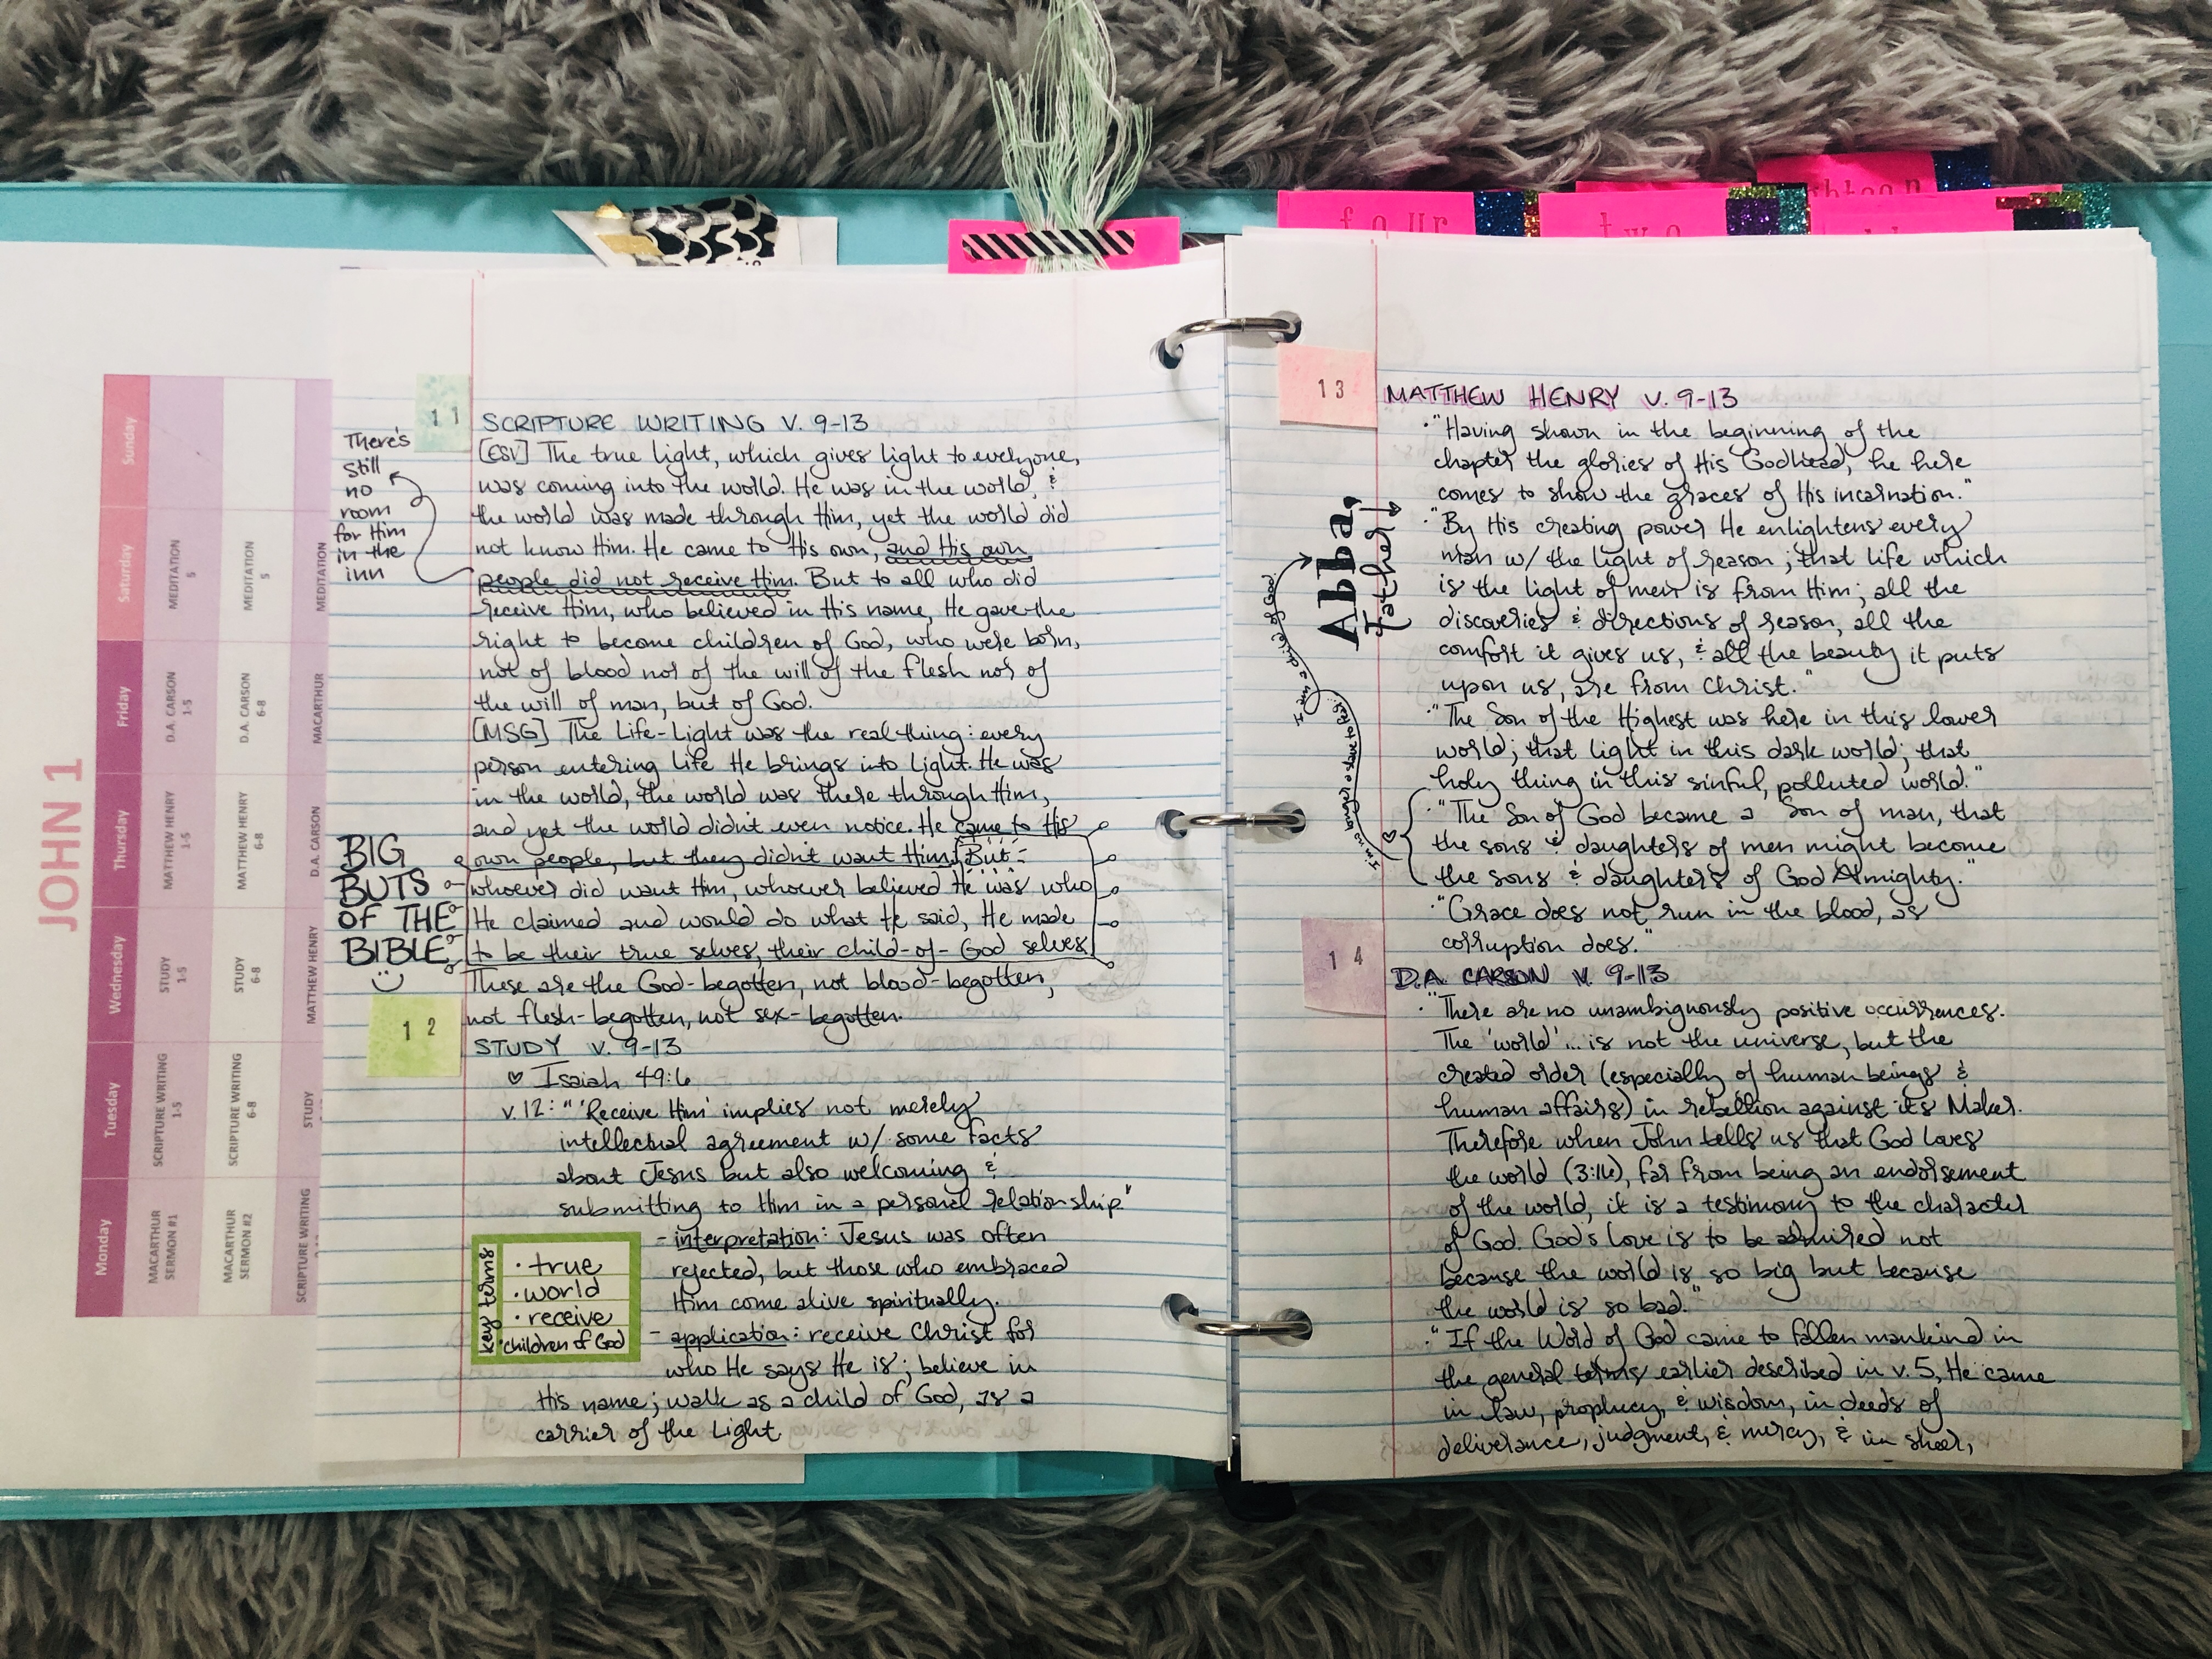 four
two
JOHN 1
Monday
Tuesday
Wednesday
Thursday
Friday
Saturday
Sunday
MACARTHUR SERMON #1
SCRIPTURE WRITING 1-5
STUDY 1-5
MATTHEW HENRY 1-5
D.A. CARSON 1-5
MEDITATION 5
MACARTHUR SERMON #2
SCRIPTURE WRITING 6-8
STUDY 6-8
MATTHEW HENRY 6-8
D.A. CARSON 6-8
MEDITATION 5
SCRIPTURE WRITING
STUDY
MATTHEW HENRY
D.A. CARSON
MACARTHUR
MEDITATION
11
SCRIPTURE WRITING V. 9-13
[ESV] The true light, which gives light to everyone,
was coming into the world. He was in the world, &
the world was made through Him, yet the world did
not know Him. He came to His own, and His own
people did not receive Him. But to all who did
receive Him, who believed in His name, He gave the
right to become children of God, who were born,
not of blood nor of the will of the flesh nor of
the will of man, but of God.
[MSG] The Life-Light was the real thing: every
person entering life He brings into Light. He was
in the world, the world was there through Him,
and yet the world didn't even notice. He came to His
own people, but they didn't want Him. But
whoever did want Him, whoever believed He was who
He claimed and would do what He said, He made
to be their true selves, their child-of-God selves.
These are the God-begotten, not blood-begotten,
not flesh-begotten, not sex-begotten.
There's
still
no
room
for Him
in the
inn
BIG
BUTS
OF THE
BIBLE
12
STUDY V. 9-13
♡ Isaiah 49:6
v.12: "'Receive Him' implies not merely
intellectual agreement w/ some facts
about Jesus but also welcoming &
submitting to Him in a personal relationship."
- interpretation: Jesus was often
rejected, but those who embraced
Him come alive spiritually.
- application: receive Christ for
who He says He is; believe in
His name; walk as a child of God, as a
carrier of the Light
key terms
· true
· world
· receive
· children of God
13
MATTHEW HENRY V. 9-13
· "Having shown in the beginning of the
chapter the glories of His Godhead, he here
comes to show the graces of His incarnation."
· "By His creating power He enlightens every
man w/ the light of reason; that life which
is the light of men is from Him; all the
discoveries & directions of reason, all the
comfort it gives us, & all the beauty it puts
upon us, are from Christ."
· "The Son of the Highest was here in this lower
world; that light in this dark world; that
holy thing in this sinful, polluted world."
· "The Son of God became a Son of man, that
the sons & daughters of men might become
the sons & daughters of God Almighty."
· "Grace does not run in the blood, as
corruption does."
Abba,
Father!
I'm no longer a slave to fear
I am a child of God
14
D.A. CARSON V. 9-13
· "There are no unambiguously positive occurrences.
The 'world'... is not the universe, but the
created order (especially of human beings &
human affairs) in rebellion against its Maker.
Therefore when John tells us that God loves
the world (3:16), far from being an endorsement
of the world, it is a testimony to the character
of God. God's love is to be admired not
because the world is so big but because
the world is so bad."
· "If the Word of God came to fallen mankind in
the general terms earlier described in v.5, He came
in law, prophecy, & wisdom, in deeds of
deliverance, judgment, & mercy, & in sheer,